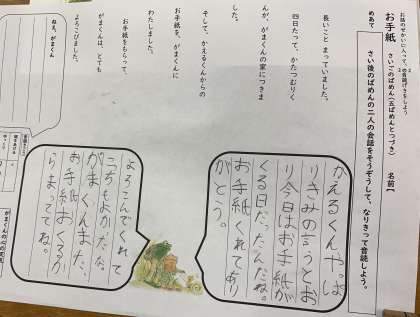 お話のせかいに入って、二人の会話げきをしよう
お手紙
さいごのばめん(五ばめんとつづき)
名前(
めあて
さい後のばめんの二人の会話をそうぞうして、なりきって音読しよう。
長いこと まっていました。
四日たって、かたつむりく
んが、がまくんの家につきま
した。
そして、かえるくんからの
お手紙を、がまくんに
わたしました。
お手紙をもらって、
がまくんは、とても
よろこびました。
ねえ、がまくん
かえるくんやっぱ
りきみの言うとお
り今日はお手紙が
くる日だったんだね。
お手紙くれてあり
がとう。
よろこんでくれて
こっちもよかたな。
がまくんまた、
お手紙おくるか
らまっててね。